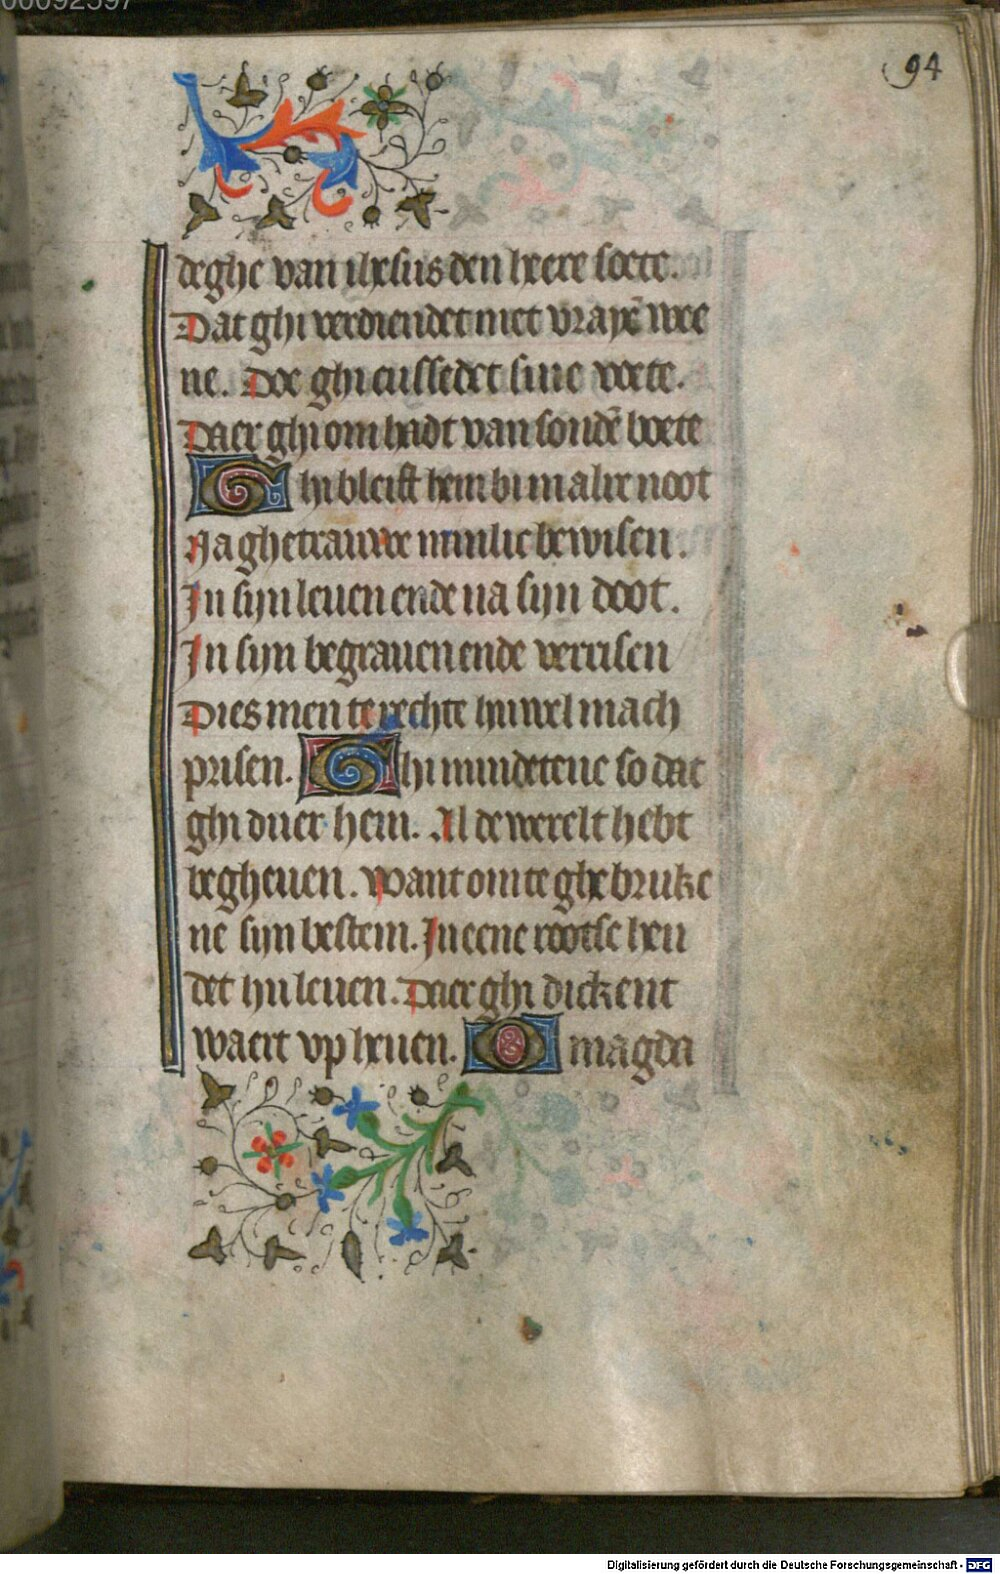 94
deghe van ihesus den heere soete.
Dat ghi verdiendet met vrayẽ wee
ne. Doe ghi cussedet sine voete.
Daer ghi om hadt van sondẽ boete
Ghi bleift hem bi in alre noot
Na ghetrauwe minlic bewisen.
In sijn leuen ende na sijn doot.
In sijn begrauen ende verrisen
Dies men te rechte hu wel mach
prisen. Ghi mindetene so dat
ghi duer hem. Al de werelt hebt
begheuen. Want om te ghebruke
ne sijn bestem. In eene rootse hen
det hu leuen. Daer ghi dicken t
waert vp heuen. O magda
Digitalisierung gefördert durch die Deutsche Forschungsgemeinschaft - DFG